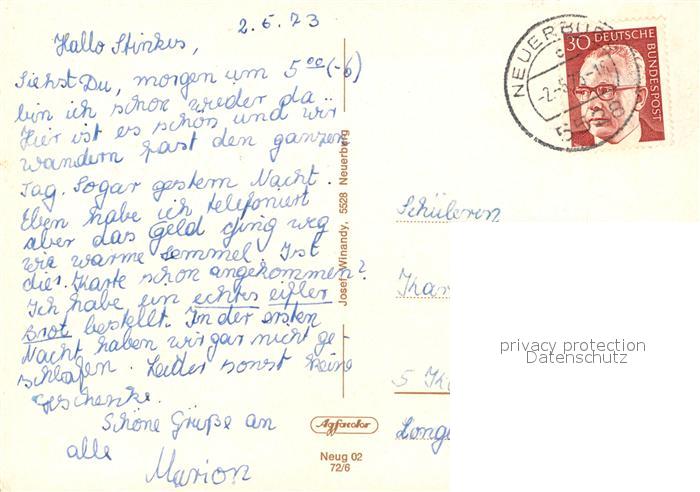 2.5.73
Hallo Stinkus,
Siehst Du, morgen um 5 00 (-6)
bin ich schon wieder da.
Hier ist es schön und wir
wandern fast den ganzen
Tag. Sogar gestern Nacht.
Eben habe ich telefoniert
aber das Geld ging weg
wie warme Semmel. Ist
die Karte schon angekommen?
Ich habe ein echtes eifler
Brot bestellt. In der ersten
Nacht haben wir gar nicht ge-
schlafen. Leider sonst keine
Geschenke.
Schöne Grüße an
alle
Marion
Josef Winandy, 5528 Neuerburg
Agfacolor
Neug 02
72/6
NEUERBU
5528
30 DEUTSCHE
BUNDESPOST
Schülerin
Kar
5 K
Longe
privacy protection
Datenschutz